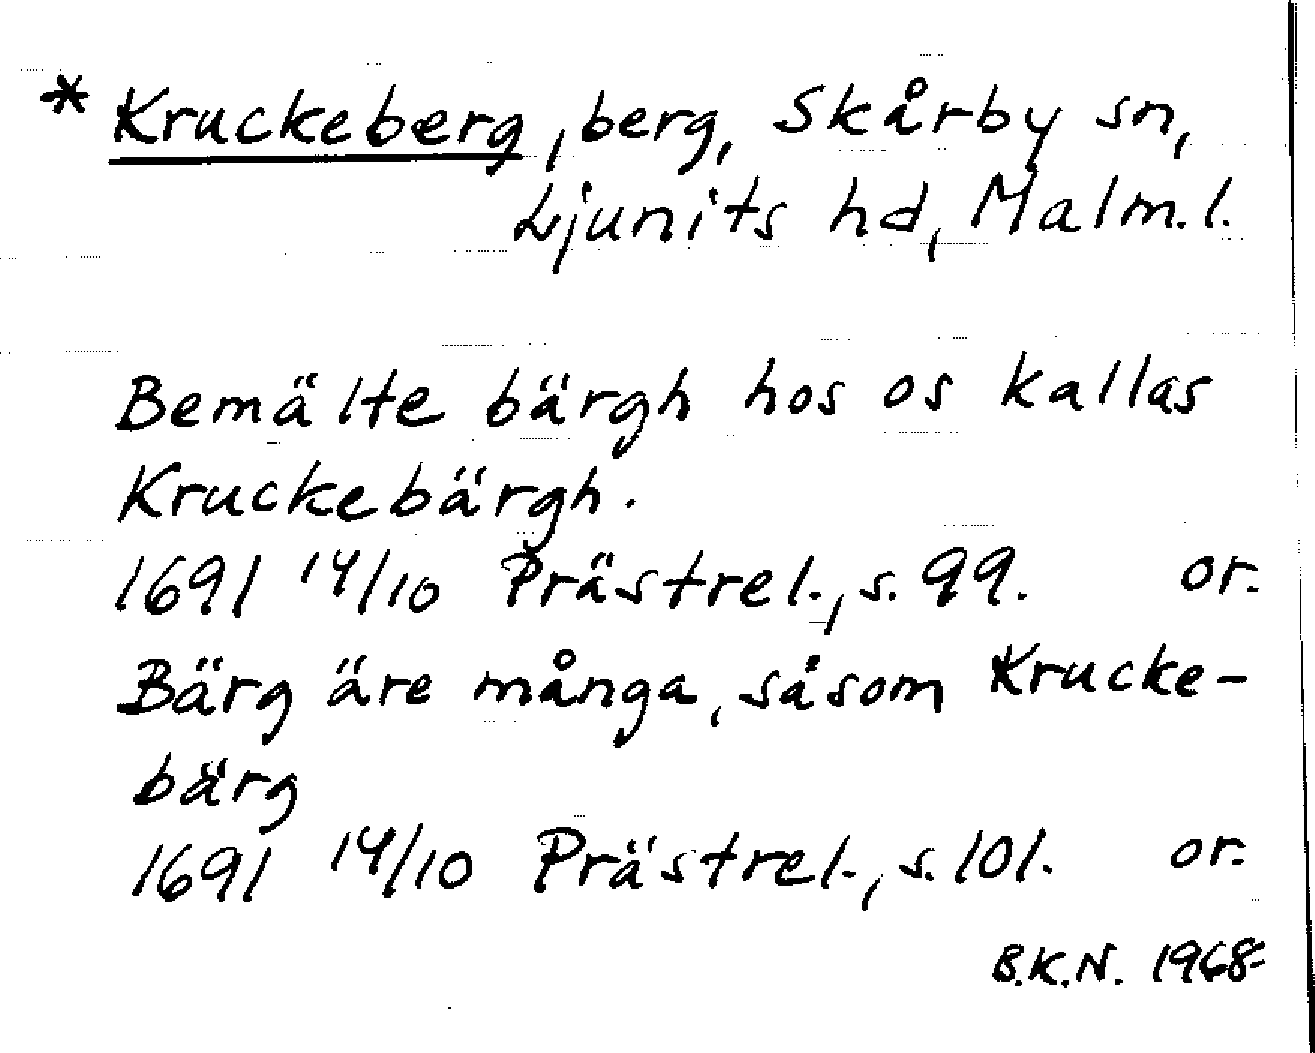 * Kruckeberg, berg, Skårby sn,
Ljunits hd, Malm.l.
Bemälte bärgh hos os kallas
Kruckebärgh.
1691 14/10 Prästrel., s. 99. or.
Bärg äre många, såsom Krucke-
bärg
1691 14/10 Prästrel., s. 101. or.
B.K.N. 1968